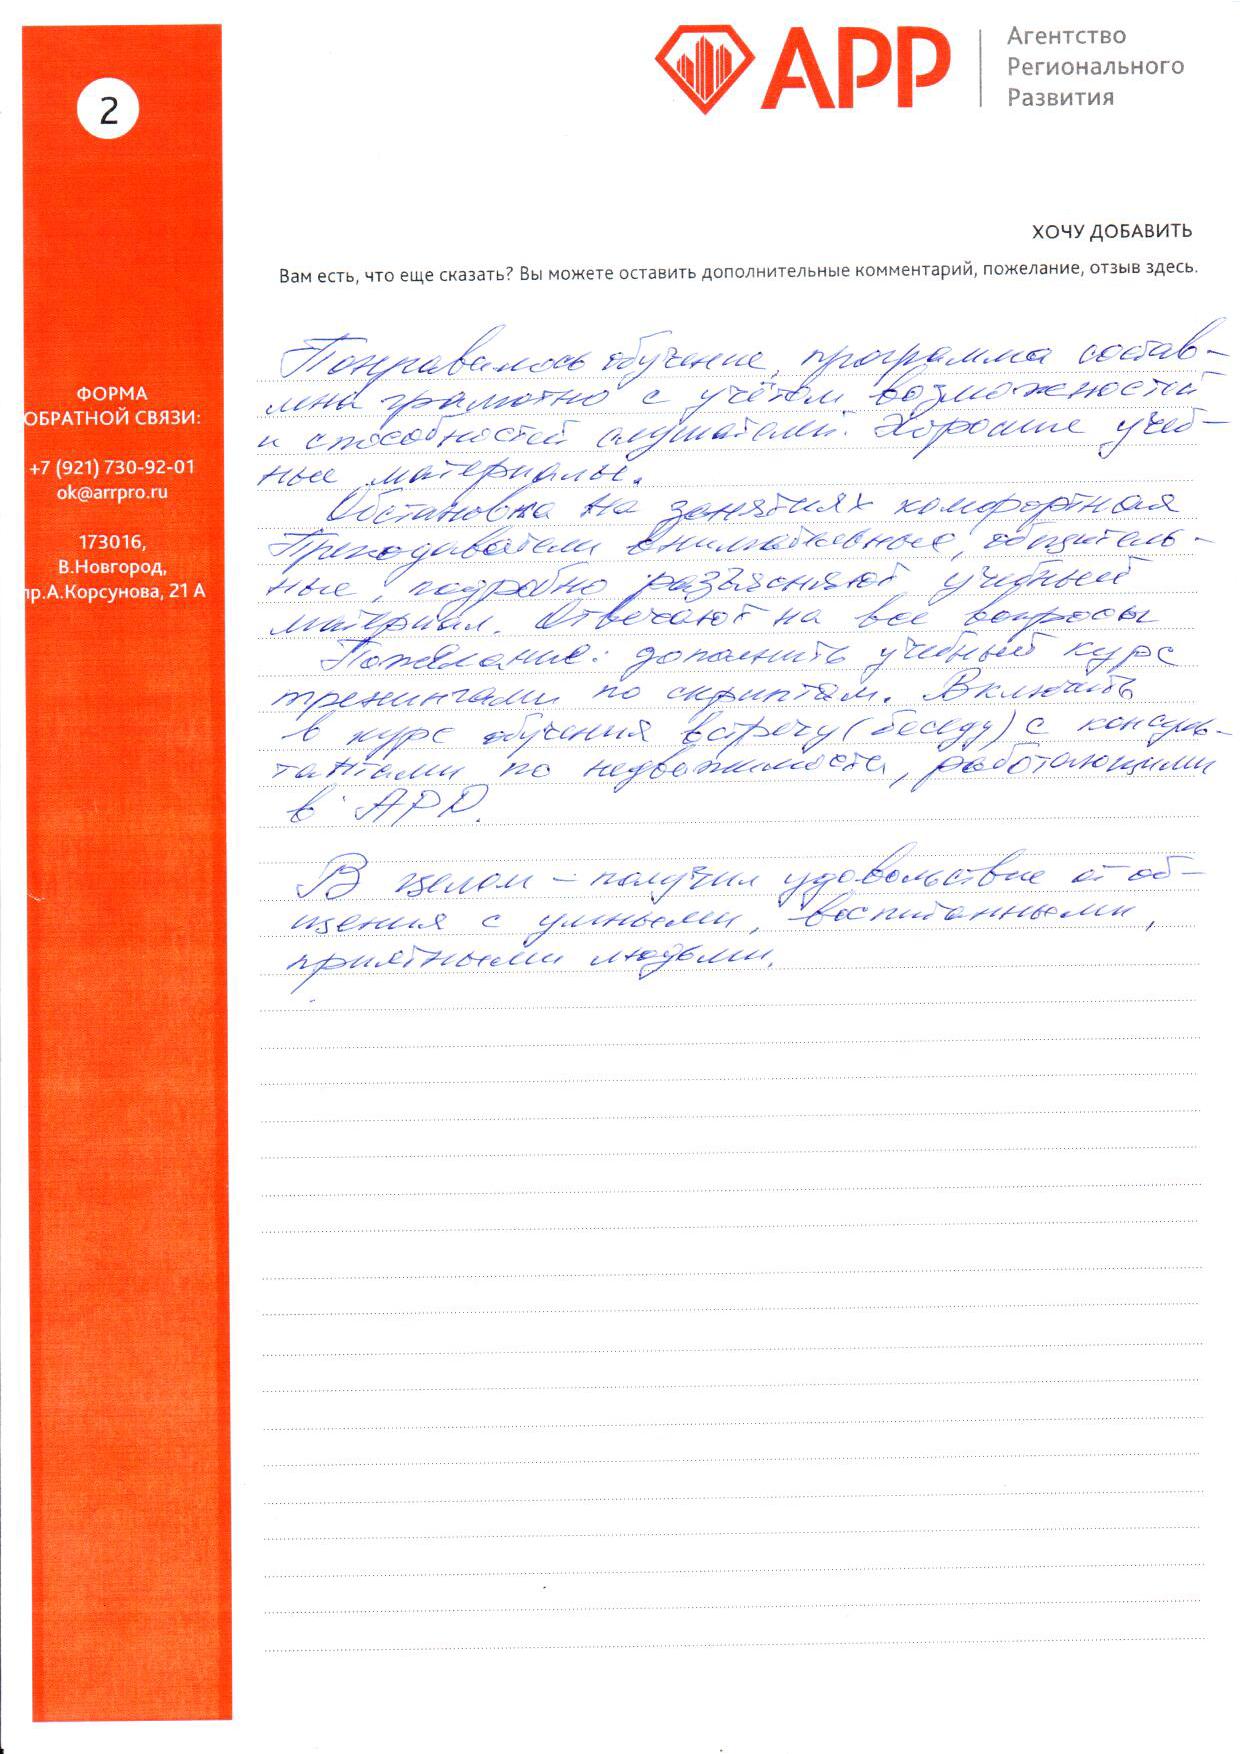 2
АРР
Агентство
Регионального
Развития
ХОЧУ ДОБАВИТЬ
Вам есть, что еще сказать? Вы можете оставить дополнительные комментарий, пожелание, отзыв здесь.
ФОРМА
ОБРАТНОЙ СВЯЗИ:
+7 (921) 730-92-01
ok@arrpro.ru
173016,
В.Новгород,
пр.А.Корсунова, 21 А
Понравилось обучение, программа состав-
лена грамотно с учётом возможностей
и способностей слушателей. Хорошие учеб-
ные материалы.
Обстановка на занятиях комфортная
Преподаватели внимательные, общитель-
ные, подробно разъясняют учебный
материал. Отвечают на все вопросы
Пожелание: дополнить учебный курс
тренингами по скриптам. Включить
в курс обучения встречу (беседу) с консуль-
тантами по недвижимости, работающими
в АРР.
В целом – получил удовольствие от об-
щения с умными, воспитанными,
приятными людьми.